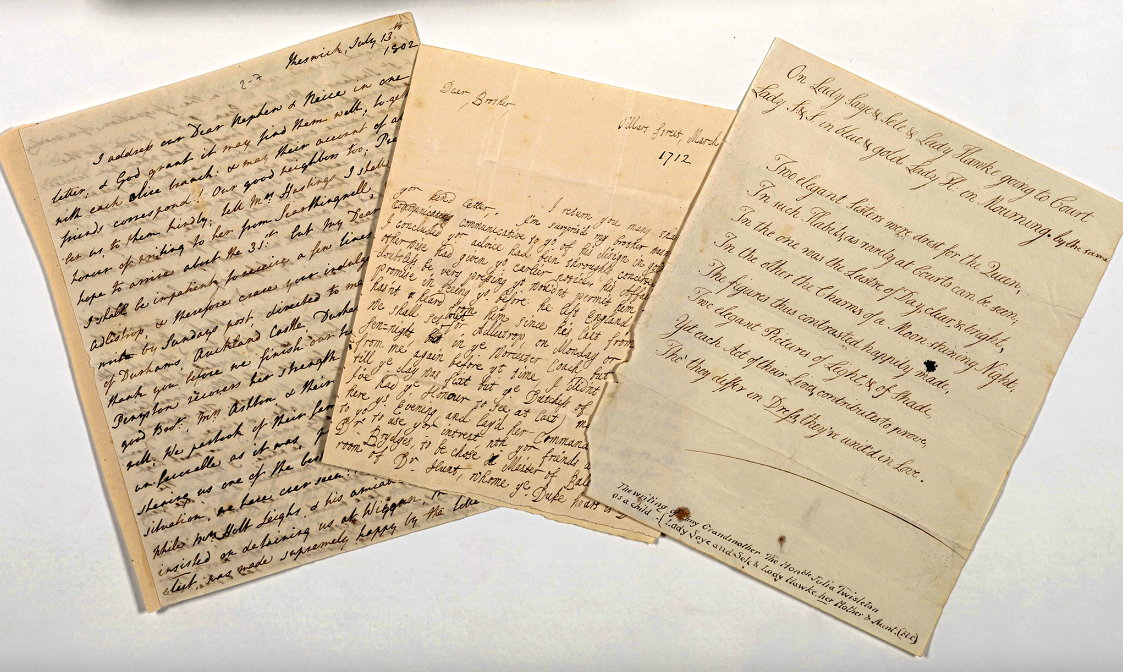 Keswick, July 13th
1802
2-7
I address our Dear Nephew & Niece in one
letter, & God grant it may find them well, to-get
with each olive branch. & may their account of a
friends correspond. Our good neighbors too; 
us, to them kindly; tell Mrs. Hastings I shall
honor of writing to her from
hope to arrive about the 31st. but My Dear
I shall be impatient to receive a few lines
Adlestrop, & therefore crave your indul
by Sundays post, directed to me
of Durhams, Auckland Castle, Durha
thank you before we finish our
recovers her strength
good Bror. Mrs. Ashton & their
well. We partook of their
unfavorable as it was.
shewing us one of the
situation, we have ever seen
while Mrs. Holt Leighs & his
insisted on detaining us at Wiggan,
was made supremely happy by the lette
Dear Brother,
Street, March
1712
I return you many tha
yor kind letter, I'm surprisd my brother
communicative to yo of his design in
I concluded yor advice had been throughly
otherwise had given yo earlier notice, his affai
doubtless be very pressing yt wou'dnt permit him
promise in seeing yo before he left England
has'nt a heard from him since his last from
we shall set out for Adlestrop, on Monday or
sen-night, in ye Worcester Coach, but
from me again before yt time, I didnt
till ye day was fixt but ye Dutchess of
have had ye Honour to see at last
to yo: Evening and lay'd her Command
for yo to use yor interest with yor friends
Brydges, to be chose Master of Bal
room of Dr. Hunt, whome ye Duke
On Lady Saye & Sele & Lady Hawke going to Court
Lady S. & S. in blue & gold Lady H. in Mourning. by the same
Two elegant Sisters were drest for the Queen,
In such Habits, as rarely at Courts can be seen;
In the one was the Lustre of Day, clear, & bright,
In the other the Charms of a Moon-shining Night.
The figures thus contrasted happily made,
Two elegant Pictures of Light, & of Shade.
Yet each Act of their Lives, contributes to prove,
Tho' they differ in Dress, they're united in Love.
The writing of my Grandmother The Honble Julia Twisleton
as a child - (Lady Saye and Sele & Lady Hawke her Mother & Aunt.